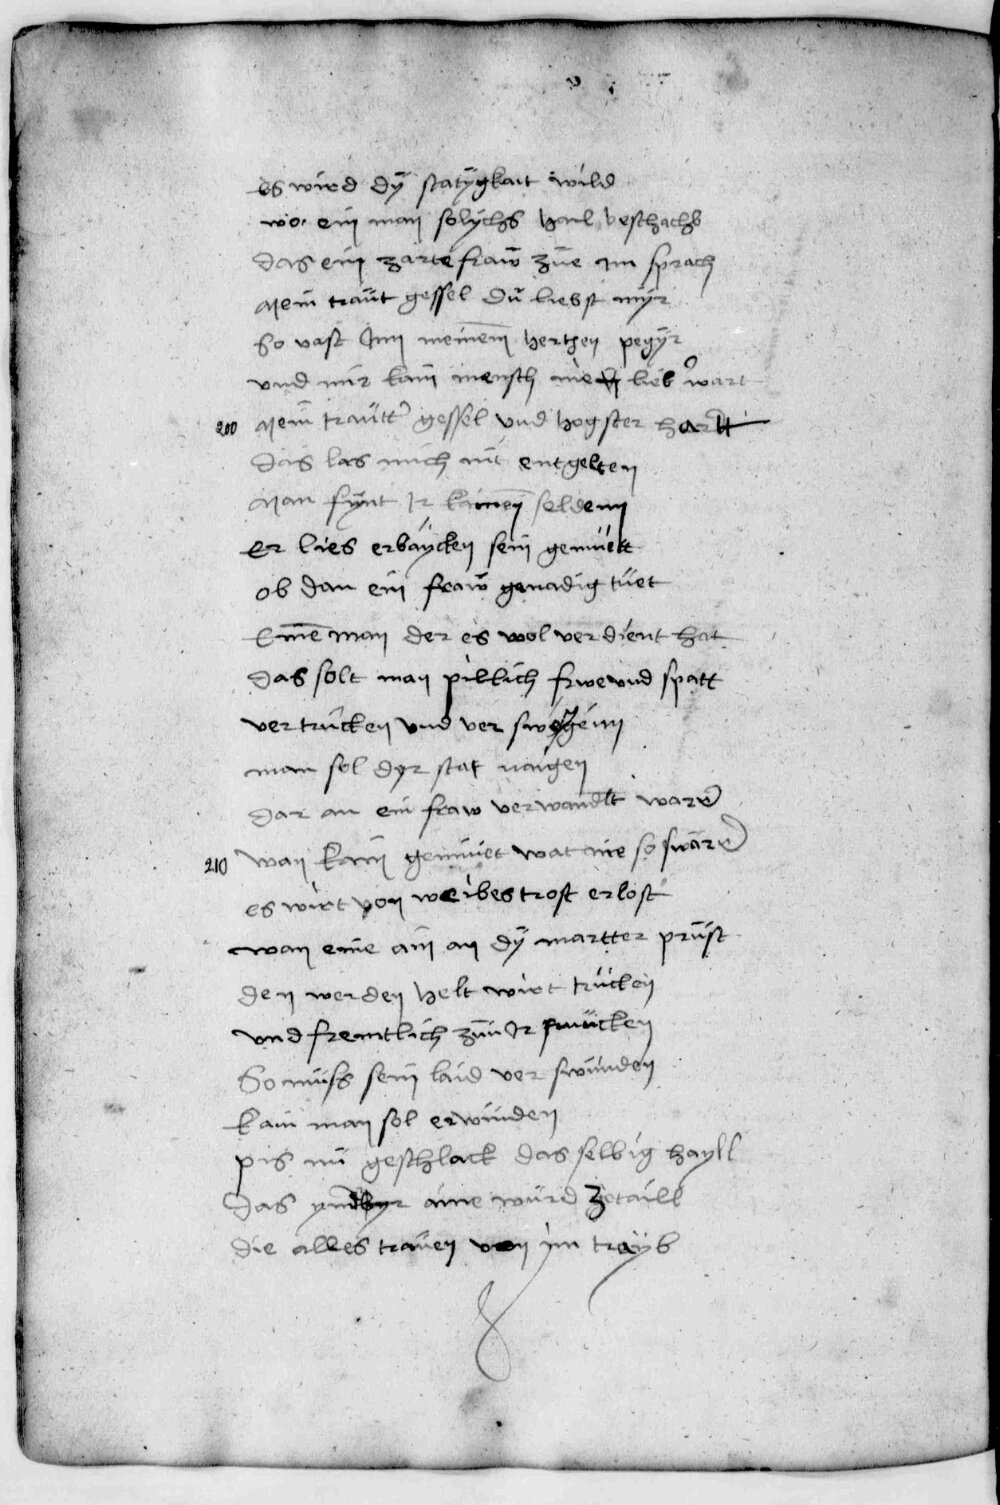 es wird dÿ statÿgkait wild
wo ein man solÿchs hail beschachs
das ein zarte fraw zue im sprach
Mein traut gessel du liebst mÿr
So vast Inn meinem hertzen pegÿr
und mir kain mensch nie lieber wart
200 Mein trautter gessel und hogster hartt
das las mich nit entgelten
Man fynt Ir kainen seldenn
Er lies erbaÿcken sein gemuett
ob dan ein fraw genadig tuet
Einem man der es wol verdient hat
das solt man pillich frwe und spatt
vertrucken und versweÿgenn
man sol dyr stat naigen
dar an ein fraw verwandlt ware
210 wan kain gemuet wat nie so swäre
es wirt von weibes trost erlost
wan eine ain an dÿ martter prust
den werden helt wirt trucken
und fremtlich zuu Ir smucken
So muss sein laid verswinden
kain man sol erwinden
pis im geschlack das selbig hayll
das aine wurd ze taill
die alles trauen von im traÿb